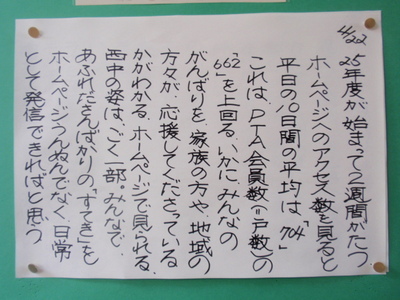 4/22
25年度が始まって2週間がたつ
ホームページへのアクセス数を見ると
平日の10日間の平均は、「704」
これは、PTA会員数(=戸数)の
「662」を上回る。いかに、みんなの
がんばりを、家族の方や、地域の
方々が、応援してくださっている
かがわかる。ホームページで見られる
西中の姿は、ごく一部。みんなで、
あふれださんばかりの「すてき」を
ホームページうんぬんでなく、日常
として発信できればと思う